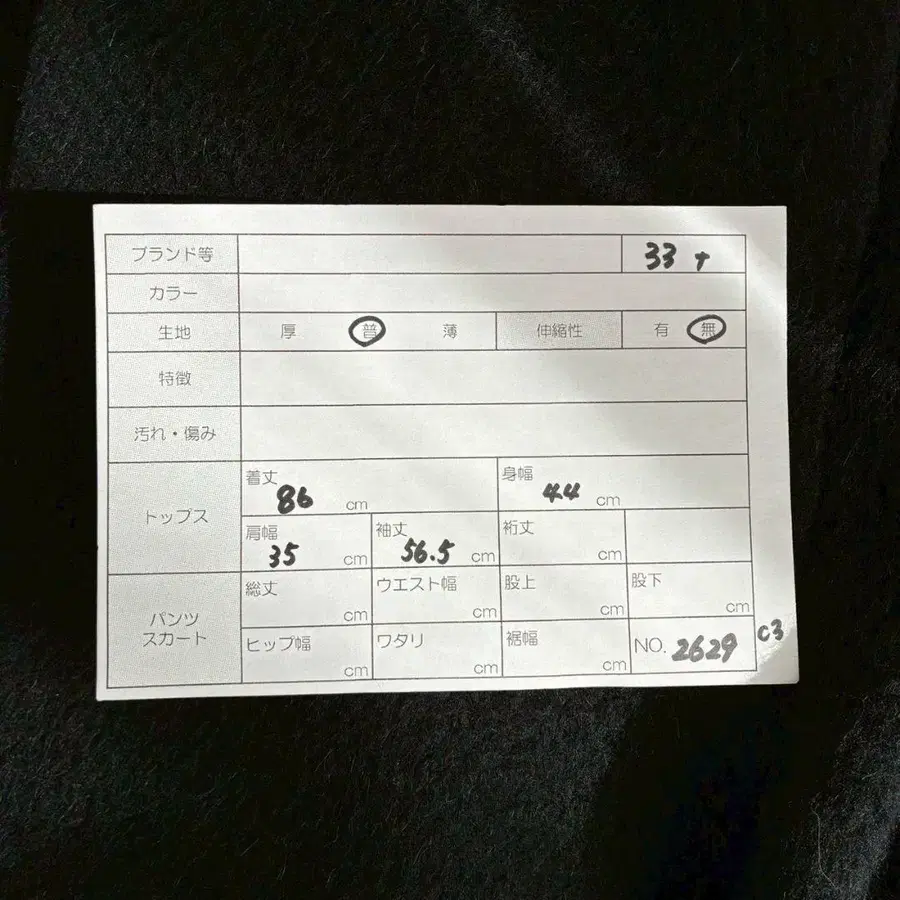 ブランド等 33 +
カラー
生地 厚 普 薄 伸縮性 有 無
特徴
汚れ・傷み
トップス
着丈 86 cm 身幅 44 cm
肩幅 35 cm 袖丈 56.5 cm 裄丈 cm
パンツ
スカート
総丈 cm ウエスト幅 cm 股上 cm 股下 cm
ヒップ幅 cm ワタリ cm 裾幅 cm NO. 2629 c3